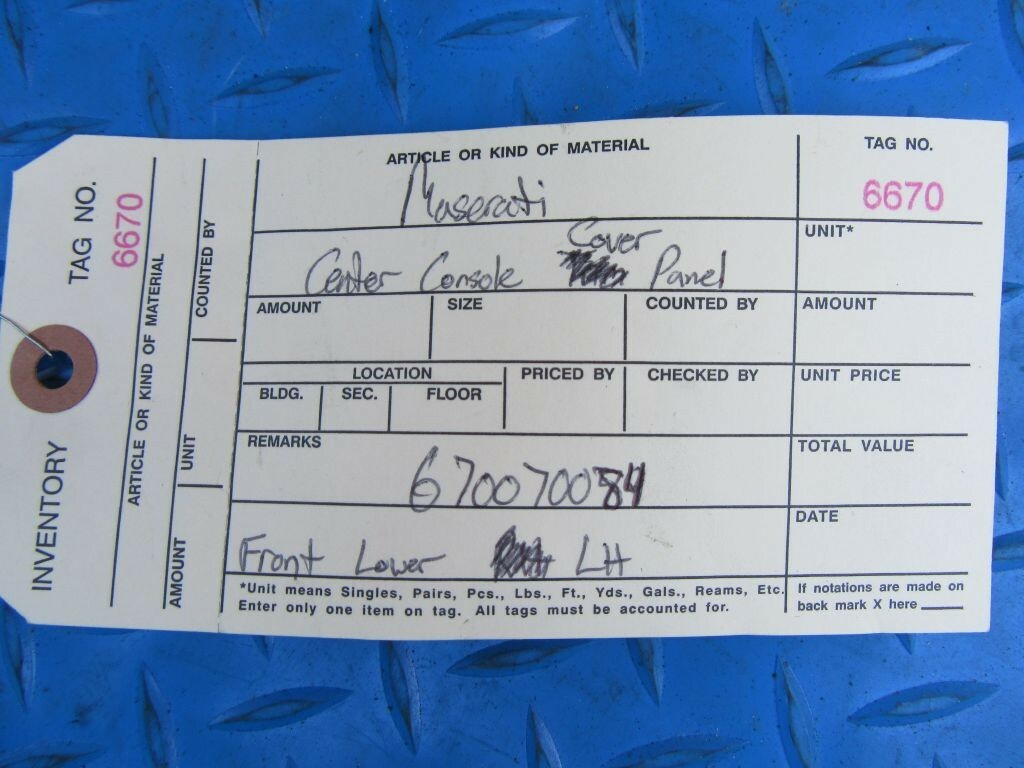 ARTICLE OR KIND OF MATERIAL
Maserati
TAG NO.
6670
Cover
Center Console Panel
UNIT*
AMOUNT SIZE COUNTED BY AMOUNT
LOCATION
BLDG. SEC. FLOOR
PRICED BY CHECKED BY UNIT PRICE
REMARKS
670070084
TOTAL VALUE
Front Lower LH
DATE
*Unit means Singles, Pairs, Pcs., Lbs., Ft., Yds., Gals., Reams, Etc.
Enter only one item on tag. All tags must be accounted for.
If notations are made on
back mark X here
INVENTORY TAG NO.
6670
ARTICLE OR KIND OF MATERIAL
AMOUNT UNIT COUNTED BY